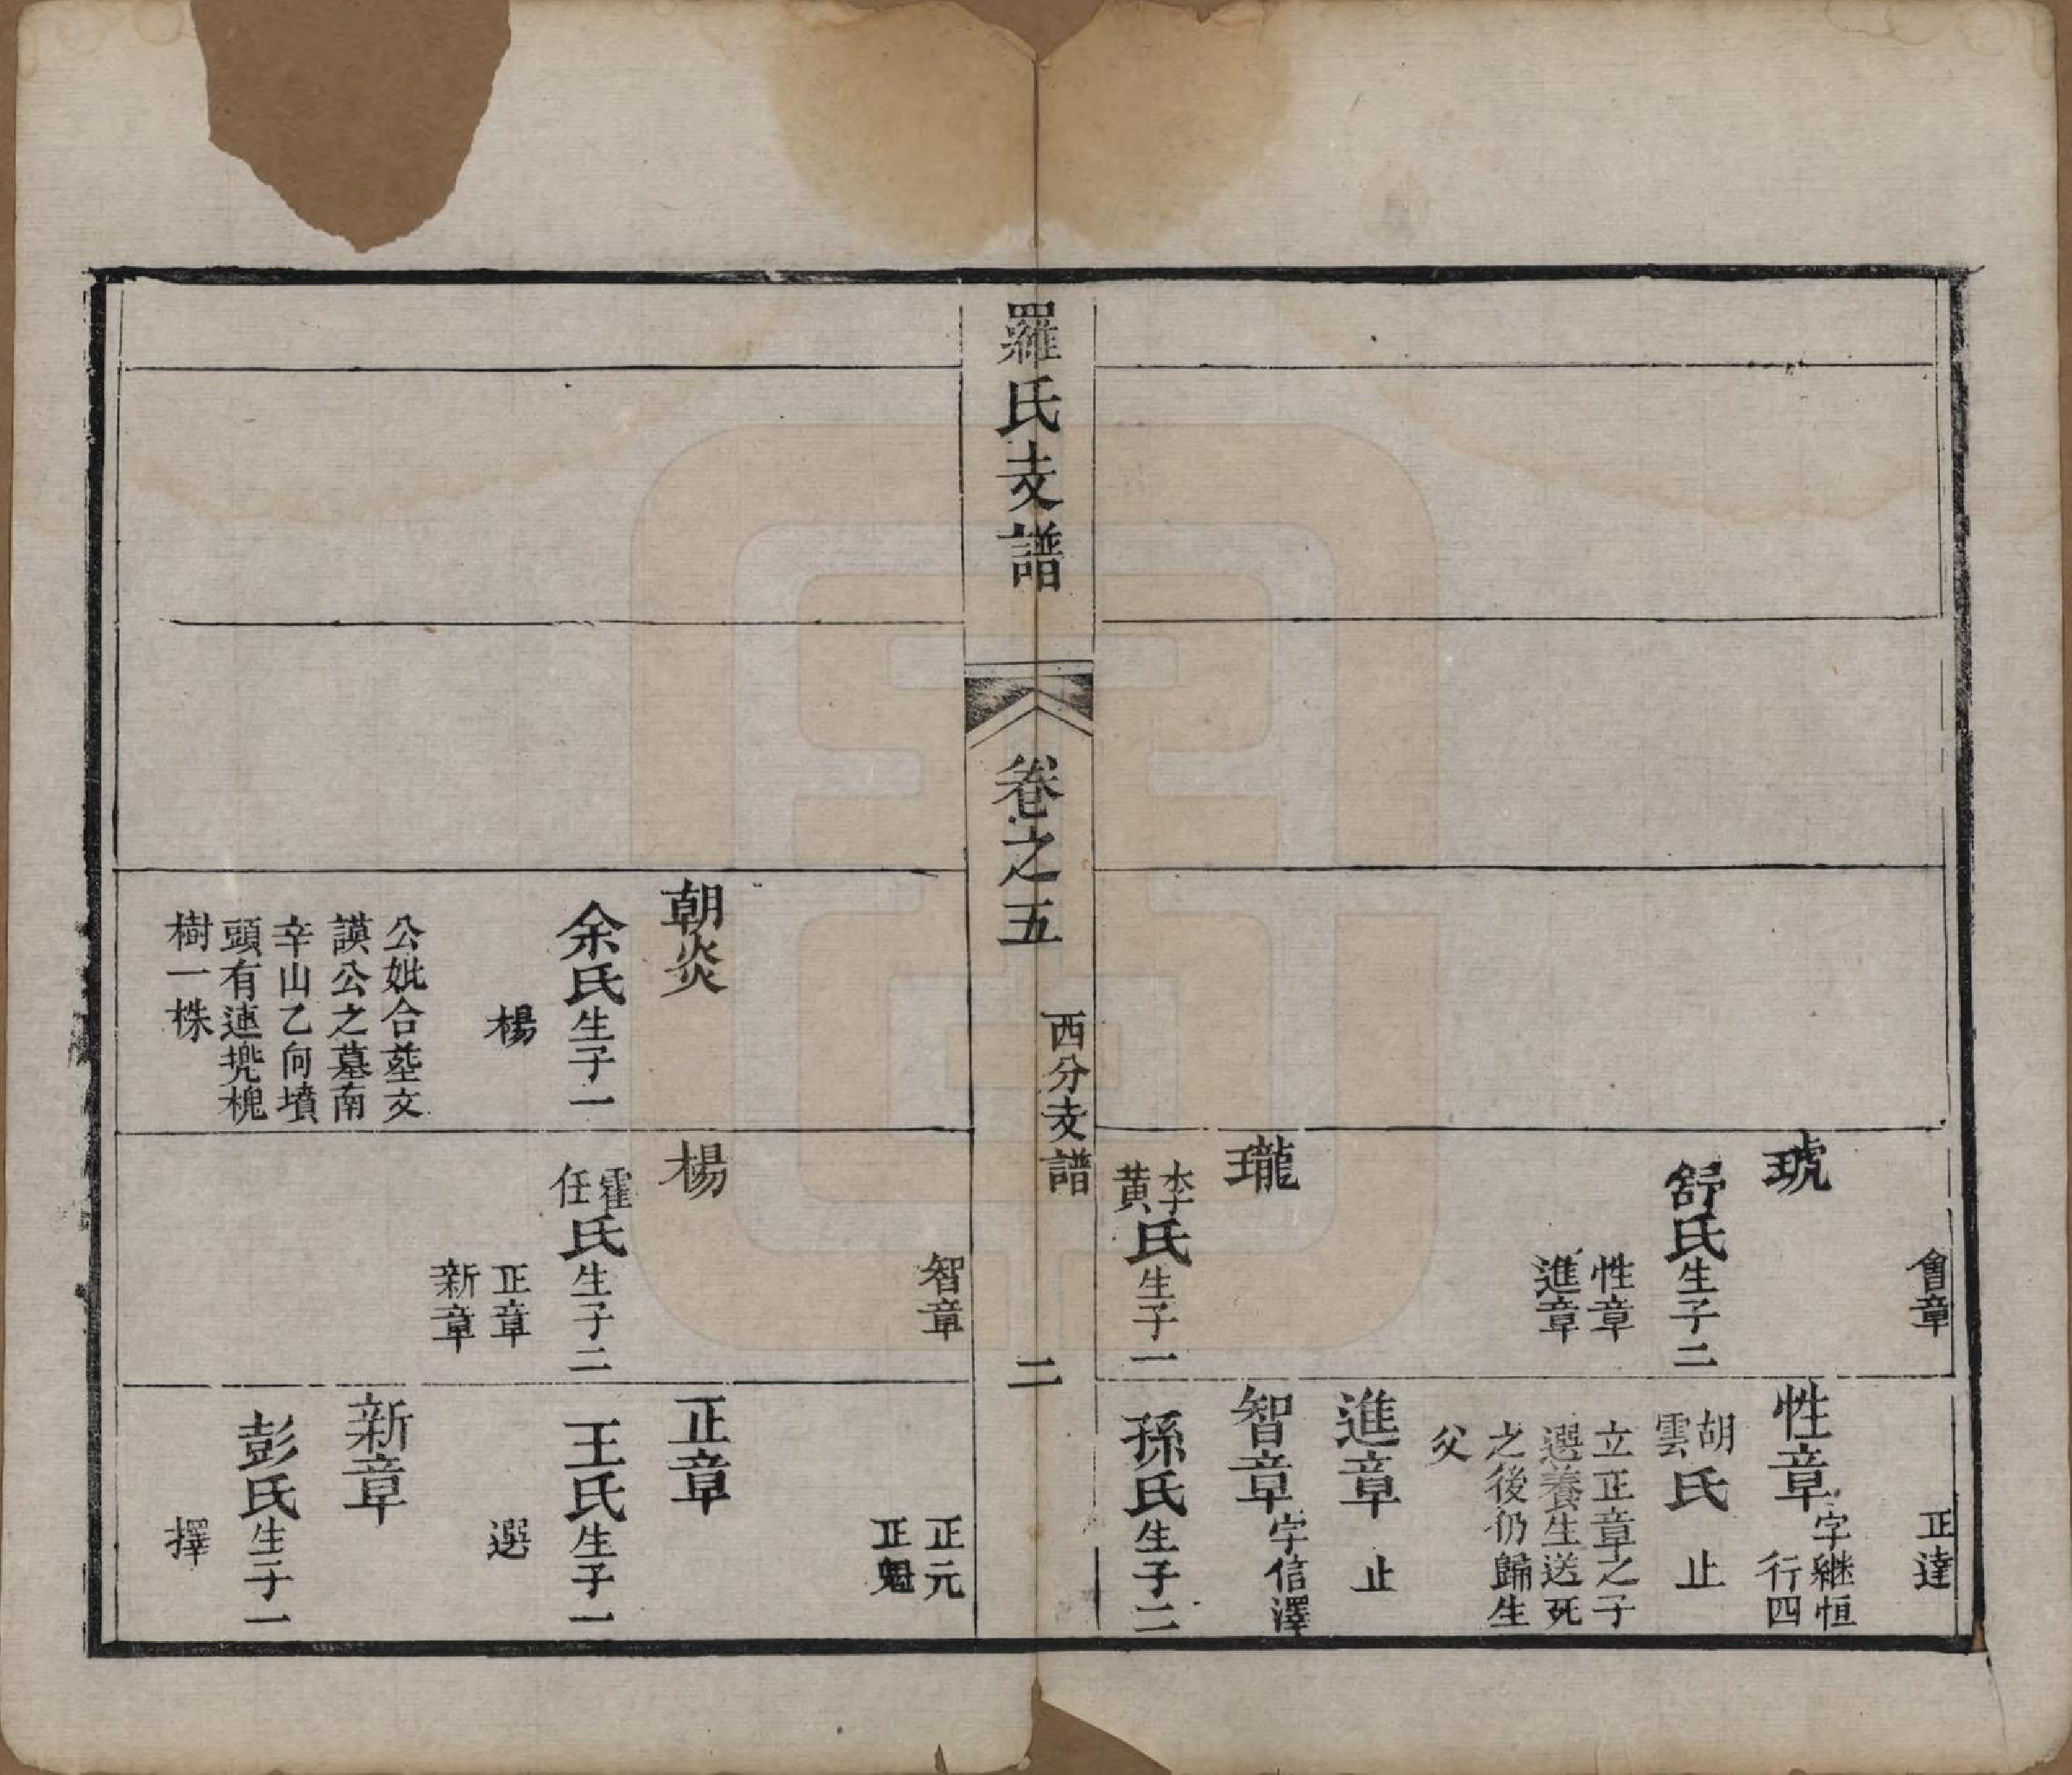 會章
琥
舒氏生子二
性章
進章
瓏
李黃氏生子一
正達
性章 字繼恒 行四
胡雲氏 止
立正章之子
選養生送死
之後仍歸生
父
進章 止
智章 字信澤
孫氏生子二
羅氏支譜
卷之五
西分支譜
二
朝炎
余氏生子一
楊
公妣合塟文
謨公之墓南
辛山乙向墳
頭有連兠槐
樹一株
智章
楊
霍任氏生子二
正章
新章
正元
正魁
正章
王氏生子一
選
新章
彭氏生子一
擇